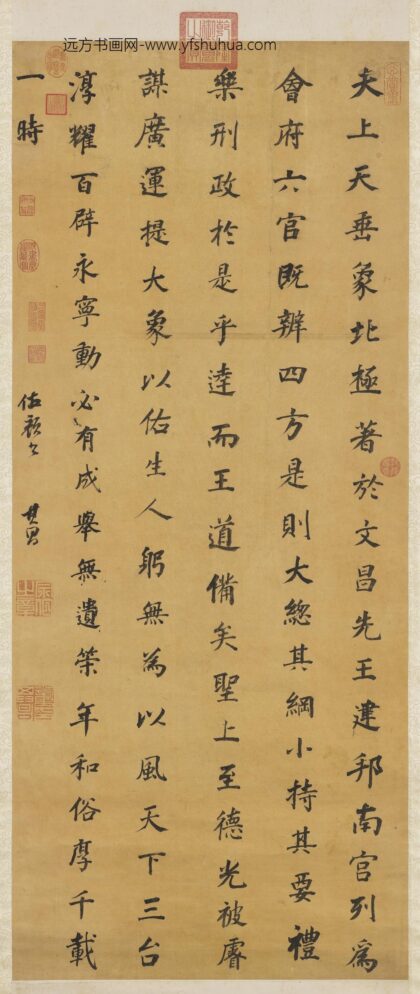 远方书画网-www.yfshuhua.com
夫上天垂象北極著於文昌先王建邦南宫列爲
會府六官既辨四方是則大總其綱小持其要禮
樂刑政於是乎達而王道備矣聖上至德光被睿
謀廣運提大象以佑生人躬無為以風天下三台
淳耀百辟永寧動必有成舉無遺策年和俗厚千載
一時
其昌